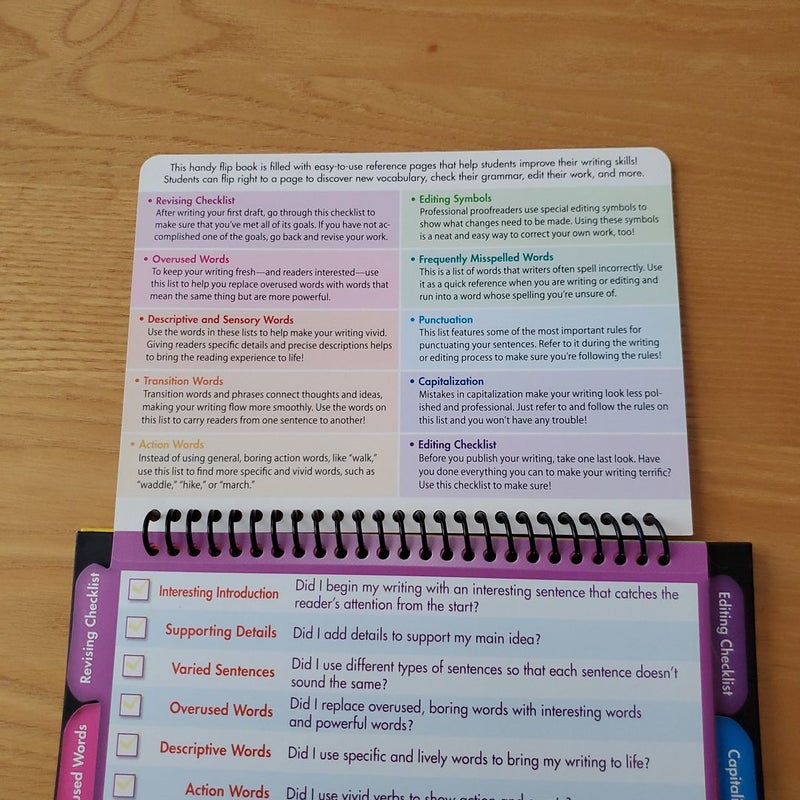 This handy flip book is filled with easy-to-use reference pages that help students improve their writing skills!
Students can flip right to a page to discover new vocabulary, check their grammar, edit their work, and more.
• Revising Checklist
After writing your first draft, go through this checklist to
make sure that you've met all of its goals. If you have not ac-
complished one of the goals, go back and revise your work.
• Overused Words
To keep your writing fresh—and readers interested—use
this list to help you replace overused words with words that
mean the same thing but are more powerful.
• Descriptive and Sensory Words
Use the words in these lists to help make your writing vivid.
Giving readers specific details and precise descriptions helps
to bring the reading experience to life!
• Transition Words
Transition words and phrases connect thoughts and ideas,
making your writing flow more smoothly. Use the words on
this list to carry readers from one sentence to another!
• Action Words
Instead of using general, boring action words, like "walk,"
use this list to find more specific and vivid words, such as
"waddle," "hike," or "march."
• Editing Symbols
Professional proofreaders use special editing symbols to
show what changes need to be made. Using these symbols
is a neat and easy way to correct your own work, too!
• Frequently Misspelled Words
This is a list of words that writers often spell incorrectly. Use
it as a quick reference when you are writing or editing and
run into a word whose spelling you're unsure of.
• Punctuation
This list features some of the most important rules for
punctuating your sentences. Refer to it during the writing
or editing process to make sure you're following the rules!
• Capitalization
Mistakes in capitalization make your writing look less pol-
ished and professional. Just refer to and follow the rules on
this list and you won't have any trouble!
• Editing Checklist
Before you publish your writing, take one last look. Have
you done everything you can to make your writing terrific?
Use this checklist to make sure!
Revising Checklist
used Words
Interesting Introduction Did I begin my writing with an interesting sentence that catches the
reader's attention from the start?
Supporting Details Did I add details to support my main idea?
Varied Sentences Did I use different types of sentences so that each sentence doesn't
sound the same?
Overused Words Did I replace overused, boring words with interesting words
and powerful words?
Descriptive Words Did I use specific and lively words to bring my writing to life?
Action Words Did I use vivid verbs to show action
Editing Checklist
Capital